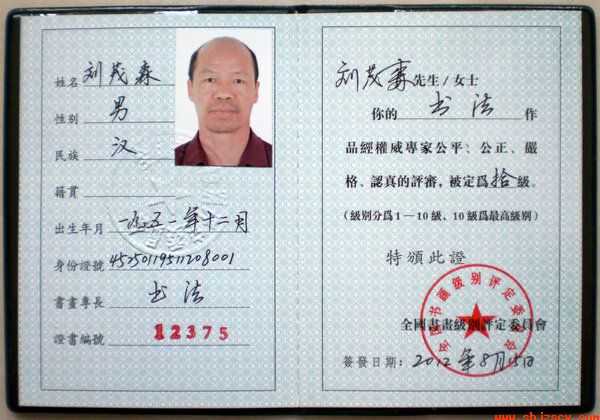 姓名 刘茂森
性别 男
民族 汉
籍貫
出生年月 一九五一年十二月
身份證號 45250119511208001
書畫專長 书法
證書編號 12375
刘茂森先生/女士
你的 书法 作
品經權威專家公平、公正、嚴
格、認真的評審，被定爲拾級。
（級别分爲1—10級，10級爲最高級别）
特頒此證
全國書畫級别評定委員會
簽發日期：2012年8月15日
全国书画级别评定委员会
www.shjzser.com